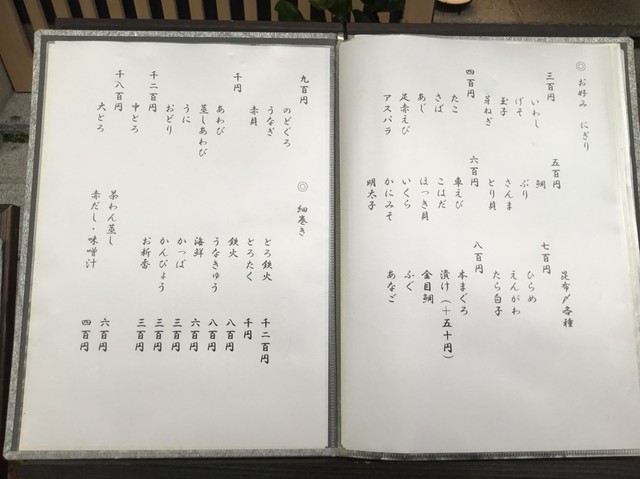 ◎ お好み にぎり
三百円
いわし
げそ
玉子
芽ねぎ
四百円
たこ
さば
あじ
足赤えび
アスパラ
五百円
鯛
ぶり
さんま
とり貝
六百円
車えび
こはだ
ほっき貝
いくら
かにみそ
明太子
昆布〆各種
七百円
ひらめ
えんがわ
たら白子
八百円
本まぐろ
漬け(+五十円)
金目鯛
ふぐ
あなご
九百円
のどぐろ
うなぎ
赤貝
千円
あわび
蒸しあわび
うに
おどり
千二百円
中とろ
千八百円
大とろ
◎ 細巻き
とろ鉄火 千二百円
とろたく 千円
鉄火 八百円
うなきゅう 八百円
海鮮 六百円
かっぱ 三百円
かんぴょう 三百円
お新香 三百円
茶わん蒸し 六百円
赤だし・味噌汁 四百円